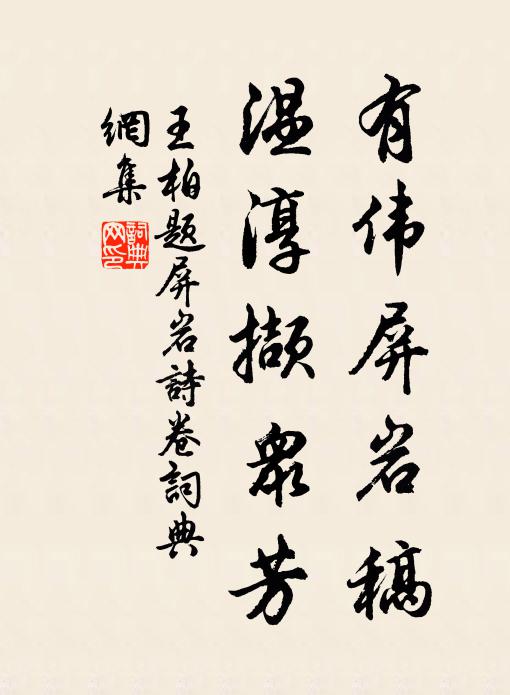 有伟屏岩稿
温淳撷眾芳
王柏题屏岩詩卷词典
網集
詞典网印